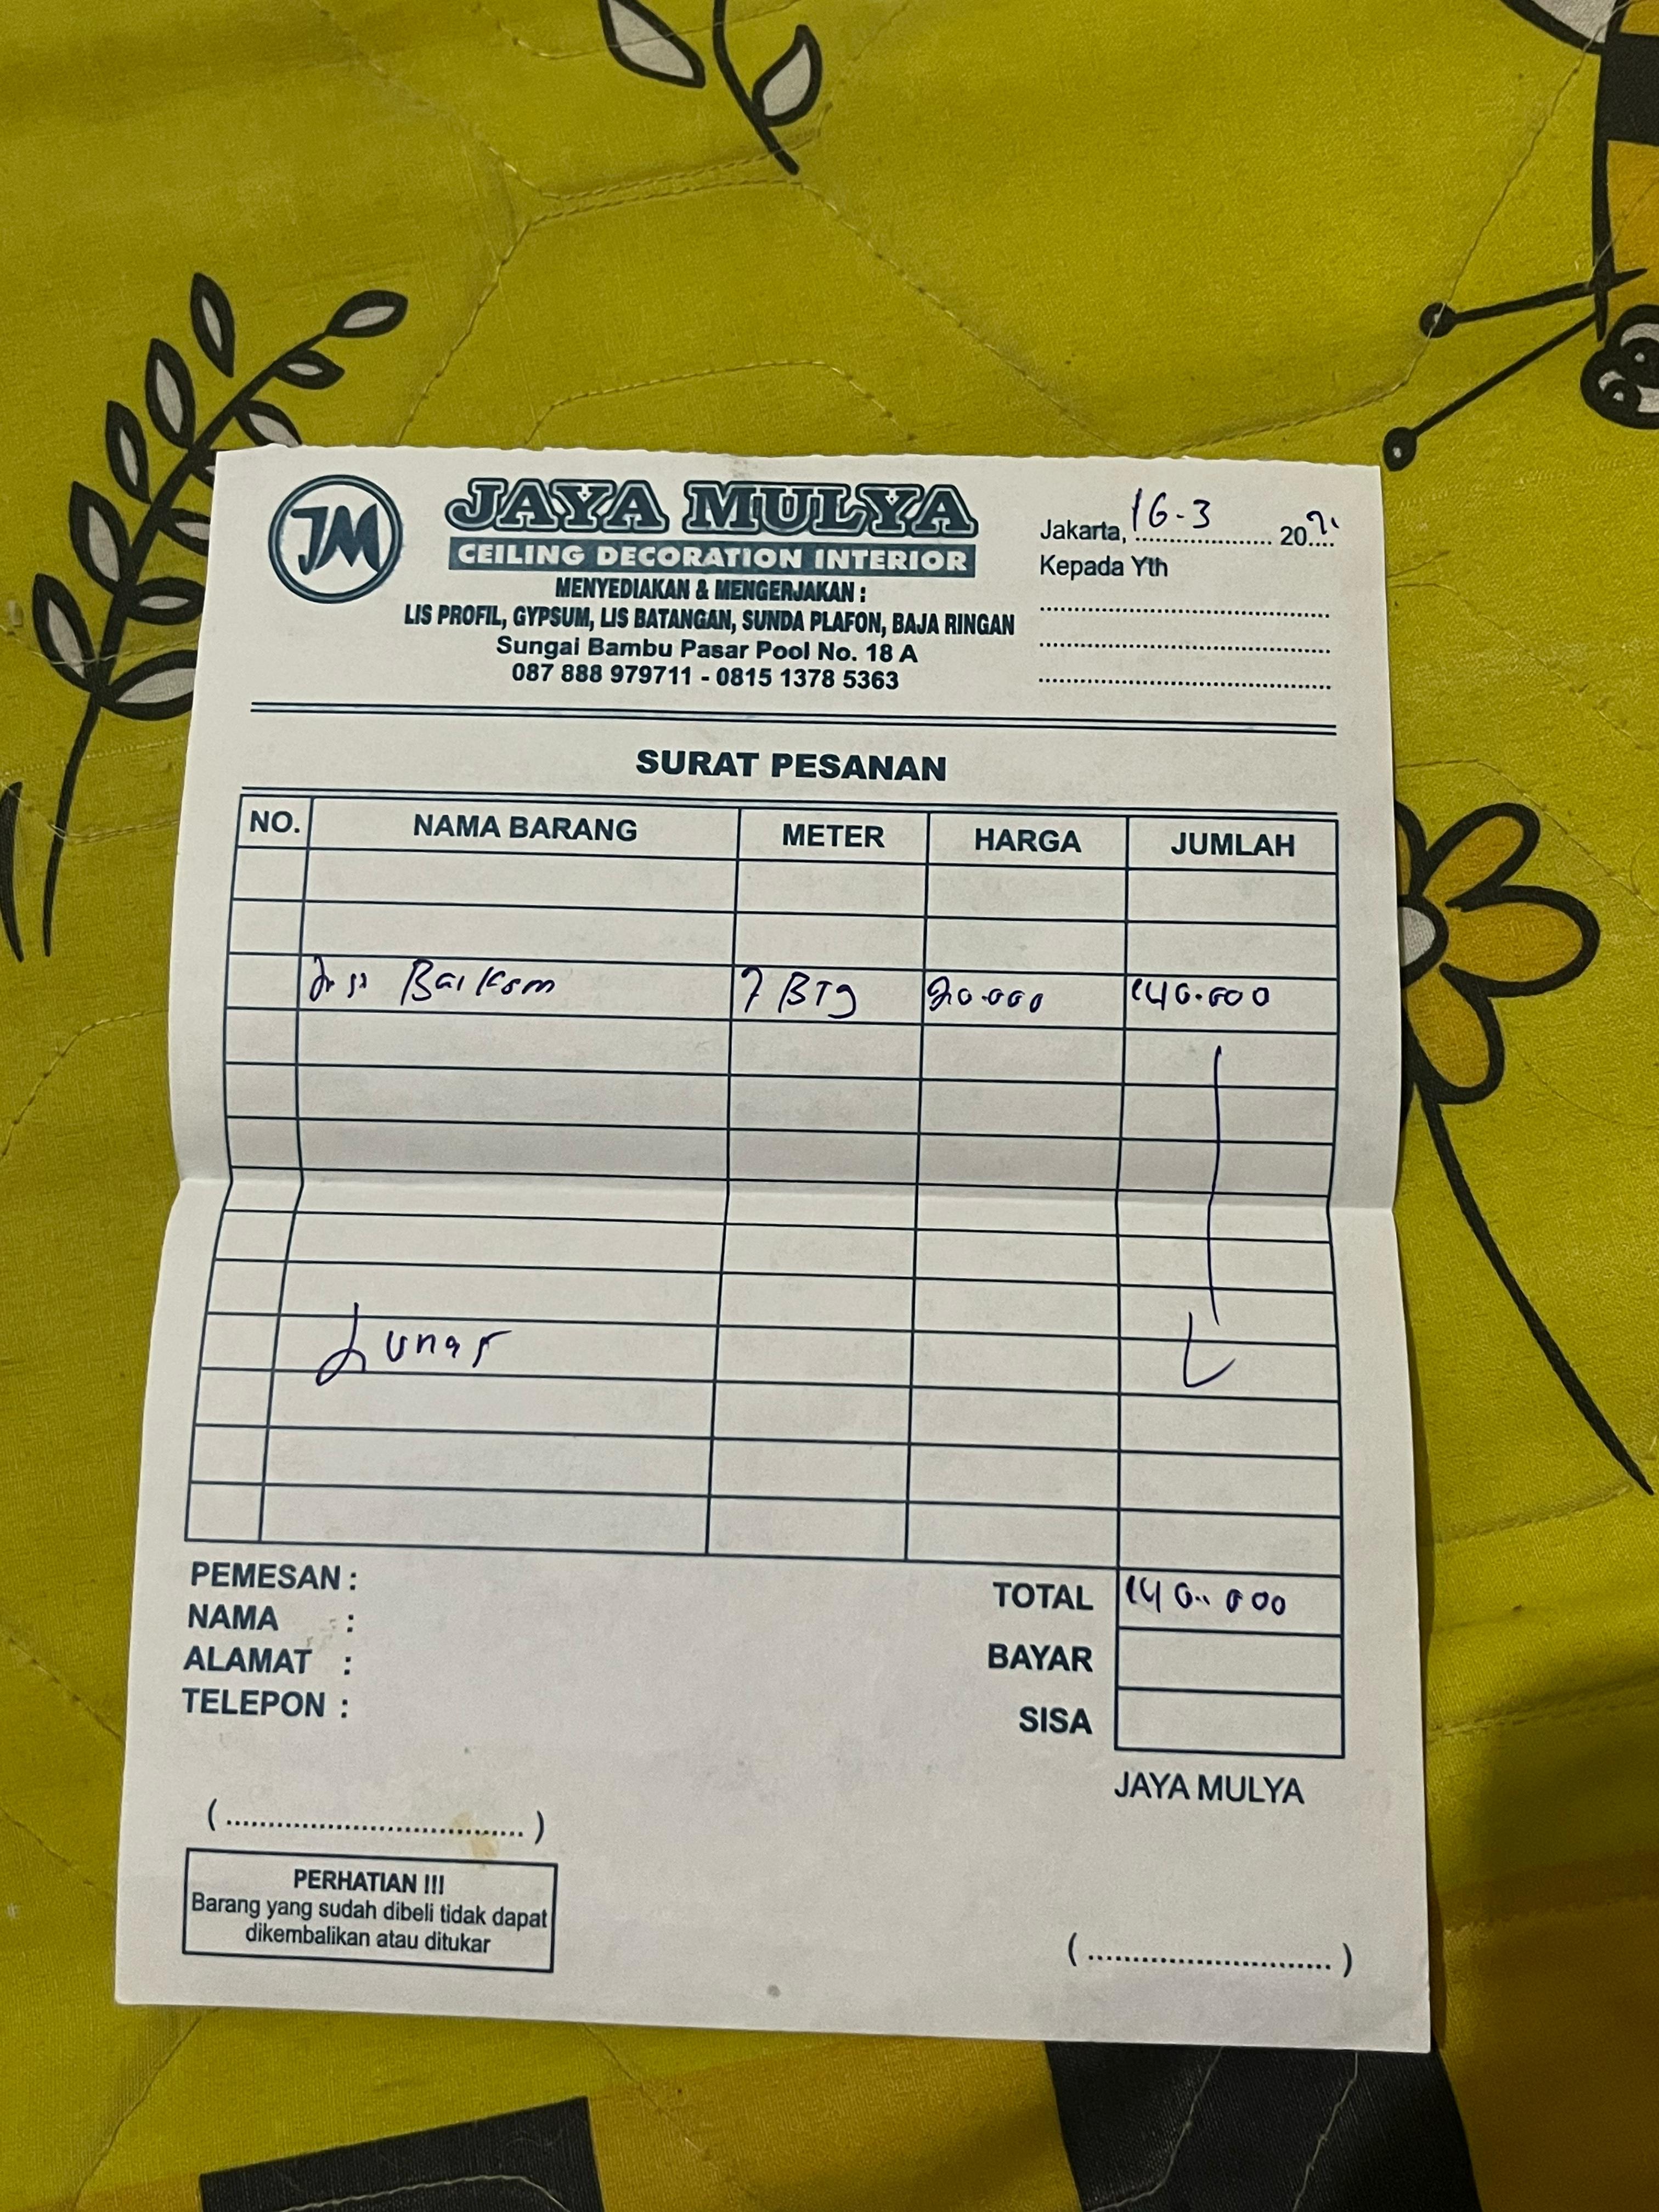 JM
JAYA MULYA
CEILING DECORATION INTERIOR
MENYEDIAKAN & MENGERJAKAN :
LIS PROFIL, GYPSUM, LIS BATANGAN, SUNDA PLAFON, BAJA RINGAN
Sungai Bambu Pasar Pool No. 18 A
087 888 979711 - 0815 1378 5363
Jakarta, 16-3 20
Kepada Yth
SURAT PESANAN
NO. NAMA BARANG METER HARGA JUMLAH
7 BTg 20.000 140.000
Lunas
PEMESAN :
NAMA :
ALAMAT :
TELEPON :
TOTAL 140.000
BAYAR
SISA
JAYA MULYA
PERHATIAN !!!
Barang yang sudah dibeli tidak dapat
dikembalikan atau ditukar